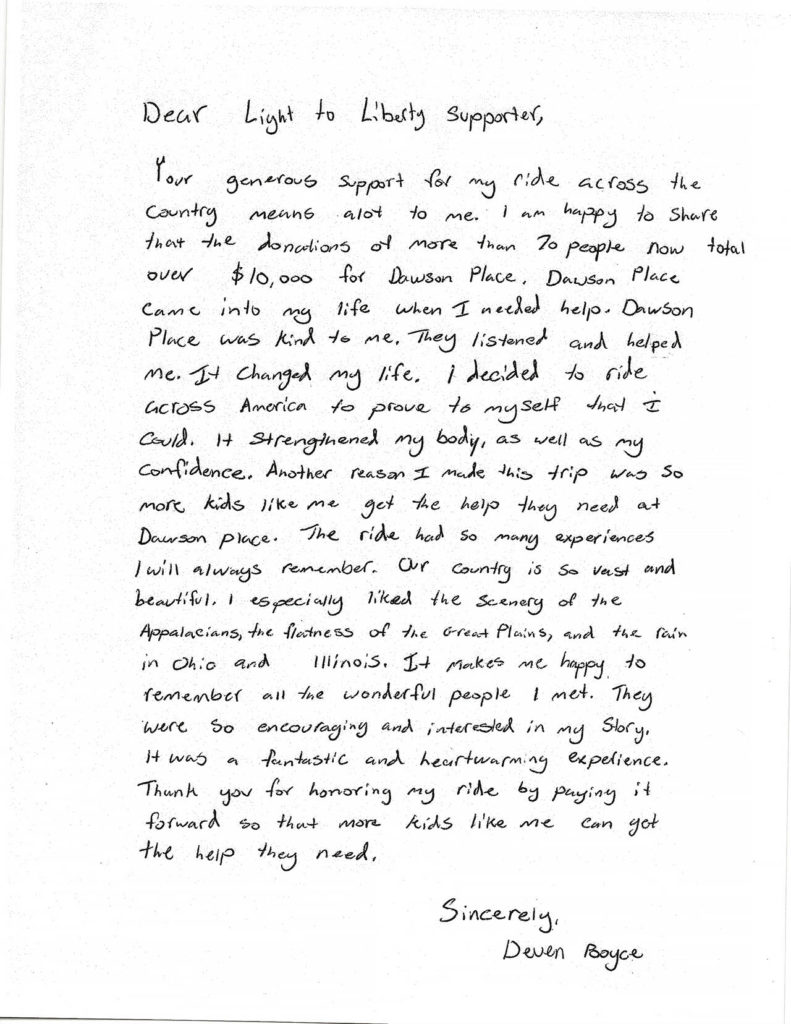 Dear Light to Liberty Supporter,
Your generous support for my ride across the
Country means alot to me. I am happy to share
that the donations of more than 70 people now total
over $10,000 for Dawson Place. Dawson Place
came into my life when I needed help. Dawson
Place was kind to me. They listened and helped
me. It changed my life. I decided to ride
across America to prove to myself that I
Could. It strengthened my body, as well as my
Confidence. Another reason I made this trip was so
more kids like me get the help they need at
Dawson place. The ride had so many experiences
I will always remember. Our Country is so vast and
beautiful. I especially liked the scenery of the
Appalacians, the flatness of the Great Plains, and the rain
in Ohio and Illinois. It makes me happy to
remember all the wonderful people I met. They
were so encouraging and interested in my story.
It was a fantastic and heartwarming experience.
Thank you for honoring my ride by paying it
forward so that more kids like me can get
the help they need.
Sincerely,
Deven Boyce